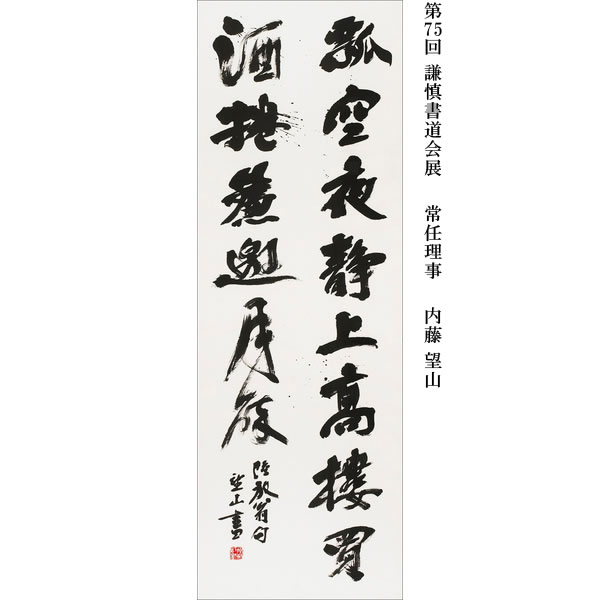 第75回 謙慎書道会展 常任理事 内藤 望山
瓢空夜静上高樓買
酒捲簾邀月醉
陸放翁句
望山書